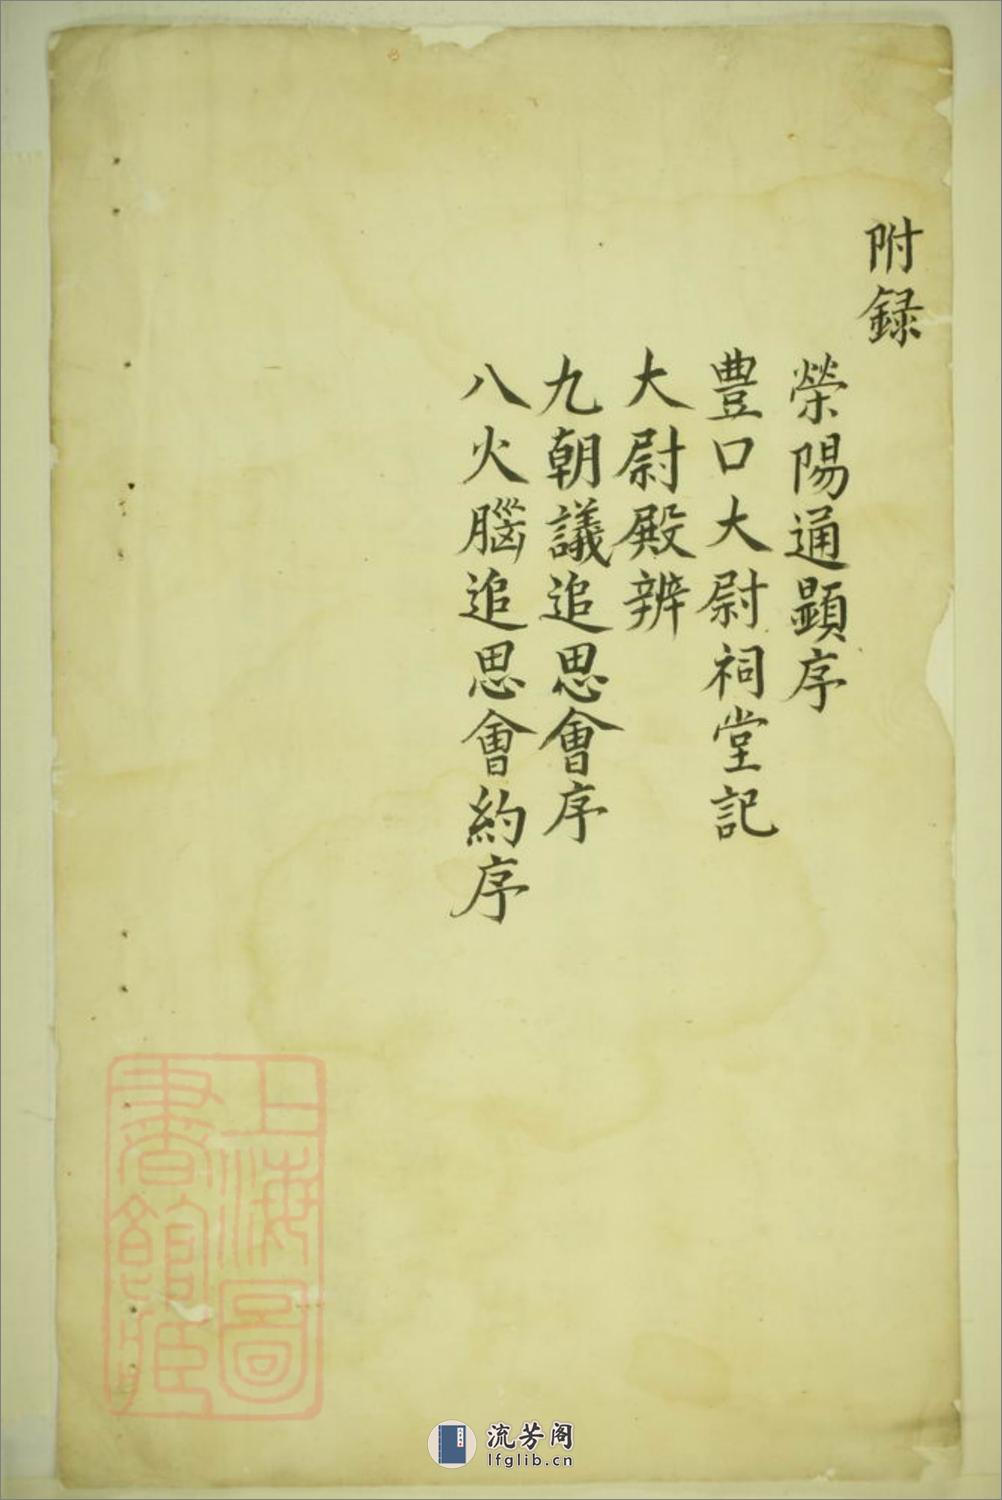 附録
榮陽通顕序
豊口大尉祠堂記
大尉殿辨
九朝議追思會序
八火腦追思會約序
上海圖
書館藏
流芳阁
lfglib.cn